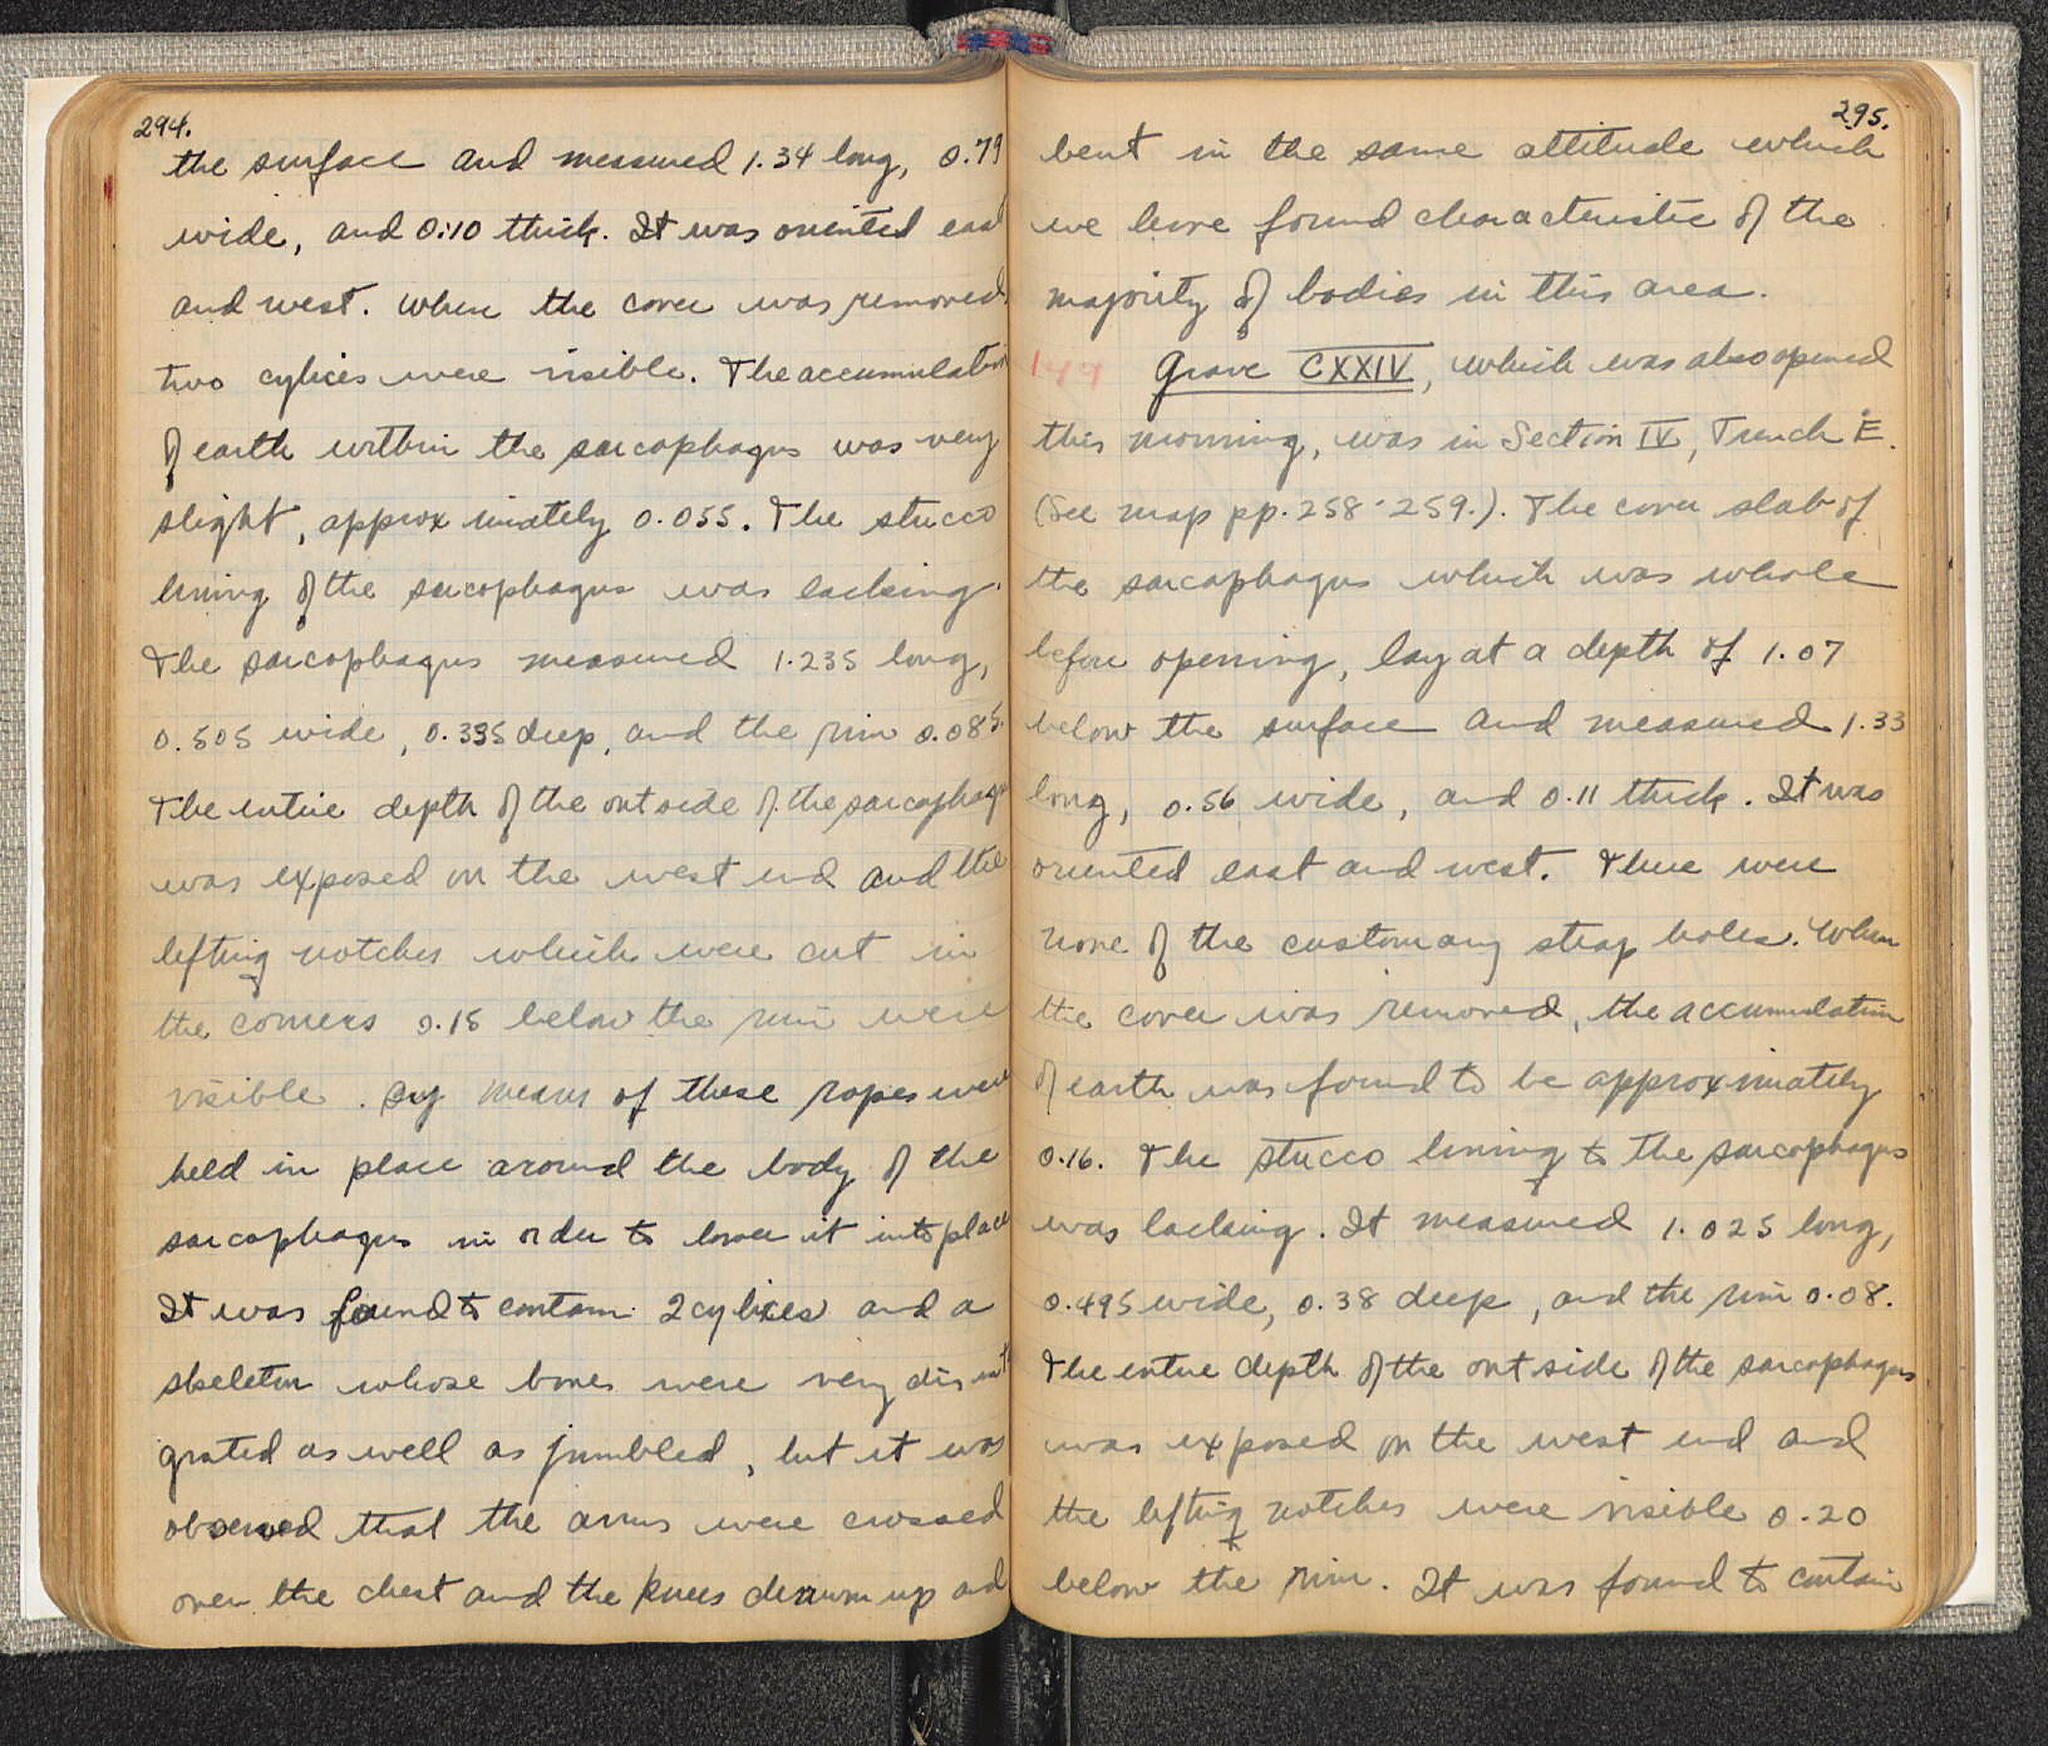 294.
the surface and measured 1.34 long, 0.79
wide, and 0.10 thick. It was oriented east
and west. When the cover was removed,
two cylices were visible. The accumulation
of earth within the sarcophagus was very
slight, approximately 0.055. The stucco
lining of the sarcophagus was lacking.
The sarcophagus measured 1.235 long,
0.505 wide, 0.335 deep, and the rim 0.085.
The entire depth of the outside of the sarcophagus
was exposed on the west end and the
lifting notches which were cut in
the corners 0.15 below the rim were
visible. By means of these ropes were
held in place around the body of the
sarcophagus in order to lower it into place
It was found to contain 2 cylices and a
skeleton whose bones were very disinte
grated as well as jumbled, but it was
observed that the arms were crossed
over the chest and the knees drawn up and
295.
bent in the same attitude which
we have found characteristic of the
majority of bodies in this area.
149 Grave CXXIV, which was also opened
this morning, was in Section IV, Trench E.
(See map pp. 258-259.). The cover slab of
the sarcophagus which was whole
before opening, lay at a depth of 1.07
below the surface and measured 1.33
long, 0.56 wide, and 0.11 thick. It was
oriented east and west. There were
none of the customary strap holes. When
the cover was removed, the accumulation
of earth was found to be approximately
0.16. The stucco lining to the sarcophagus
was lacking. It measured 1.025 long,
0.495 wide, 0.38 deep, and the rim 0.08.
The entire depth of the outside of the sarcophagus
was exposed on the west end and
the lifting notches were visible 0.20
below the rim. It was found to contain